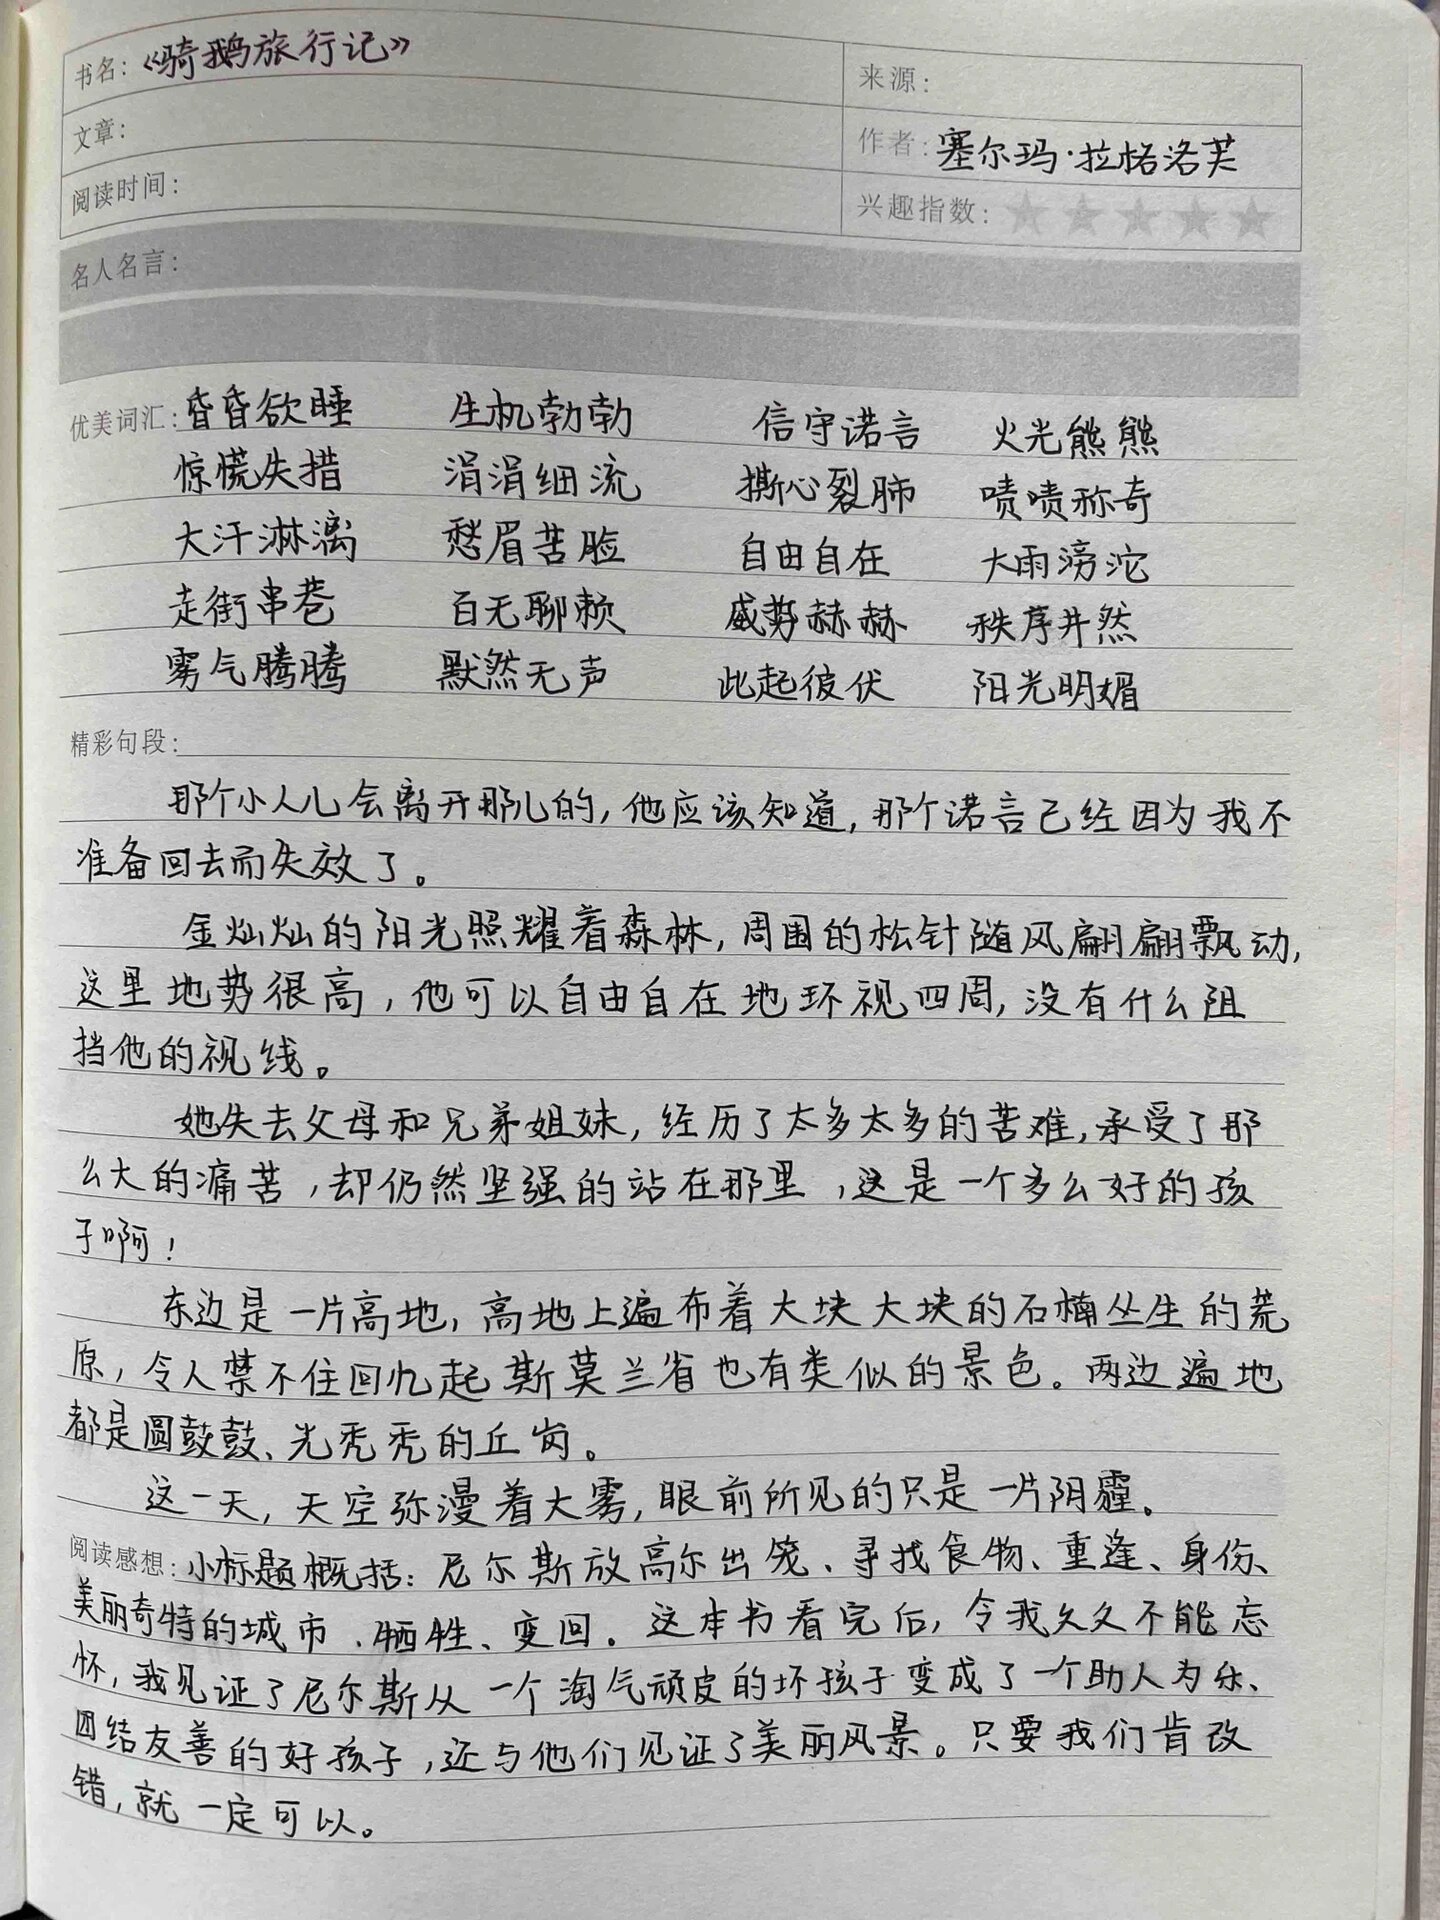 书名：《骑鹅旅行记》
来源：
文章：
作者：塞尔玛·拉格洛芙
阅读时间：
兴趣指数：
名人名言：
优美词汇：昏昏欲睡 生机勃勃 信守诺言 火光熊熊
惊慌失措 涓涓细流 撕心裂肺 啧啧称奇
大汗淋漓 愁眉苦脸 自由自在 大雨滂沱
走街串巷 百无聊赖 威势赫赫 秩序井然
雾气腾腾 默然无声 此起彼伏 阳光明媚
精彩句段：
那个小人儿会离开那儿的，他应该知道，那个诺言已经因为我不
准备回去而失效了。
金灿灿的阳光照耀着森林，周围的松针随风翩翩飘动，
这里地势很高，他可以自由自在地环视四周，没有什么阻
挡他的视线。
她失去父母和兄弟姐妹，经历了太多太多的苦难，承受了那
么大的痛苦，却仍然坚强的站在那里，这是一个多么好的孩
子啊！
东边是一片高地，高地上遍布着大块大块的石楠丛生的荒
原，令人禁不住回忆起斯莫兰省也有类似的景色。两边遍地
都是圆鼓鼓、光秃秃的丘岗。
这一天，天空弥漫着大雾，眼前所见的只是一片阴霾。
阅读感想：小标题概括：尼尔斯放高尔出笼、寻找食物、重逢、身份、
美丽奇特的城市、牺牲、变回。这本书看完后，令我久久不能忘
怀，我见证了尼尔斯从一个淘气顽皮的坏孩子变成了一个助人为乐、
团结友善的好孩子，还与他们见证了美丽风景。只要我们肯改
错，就一定可以。